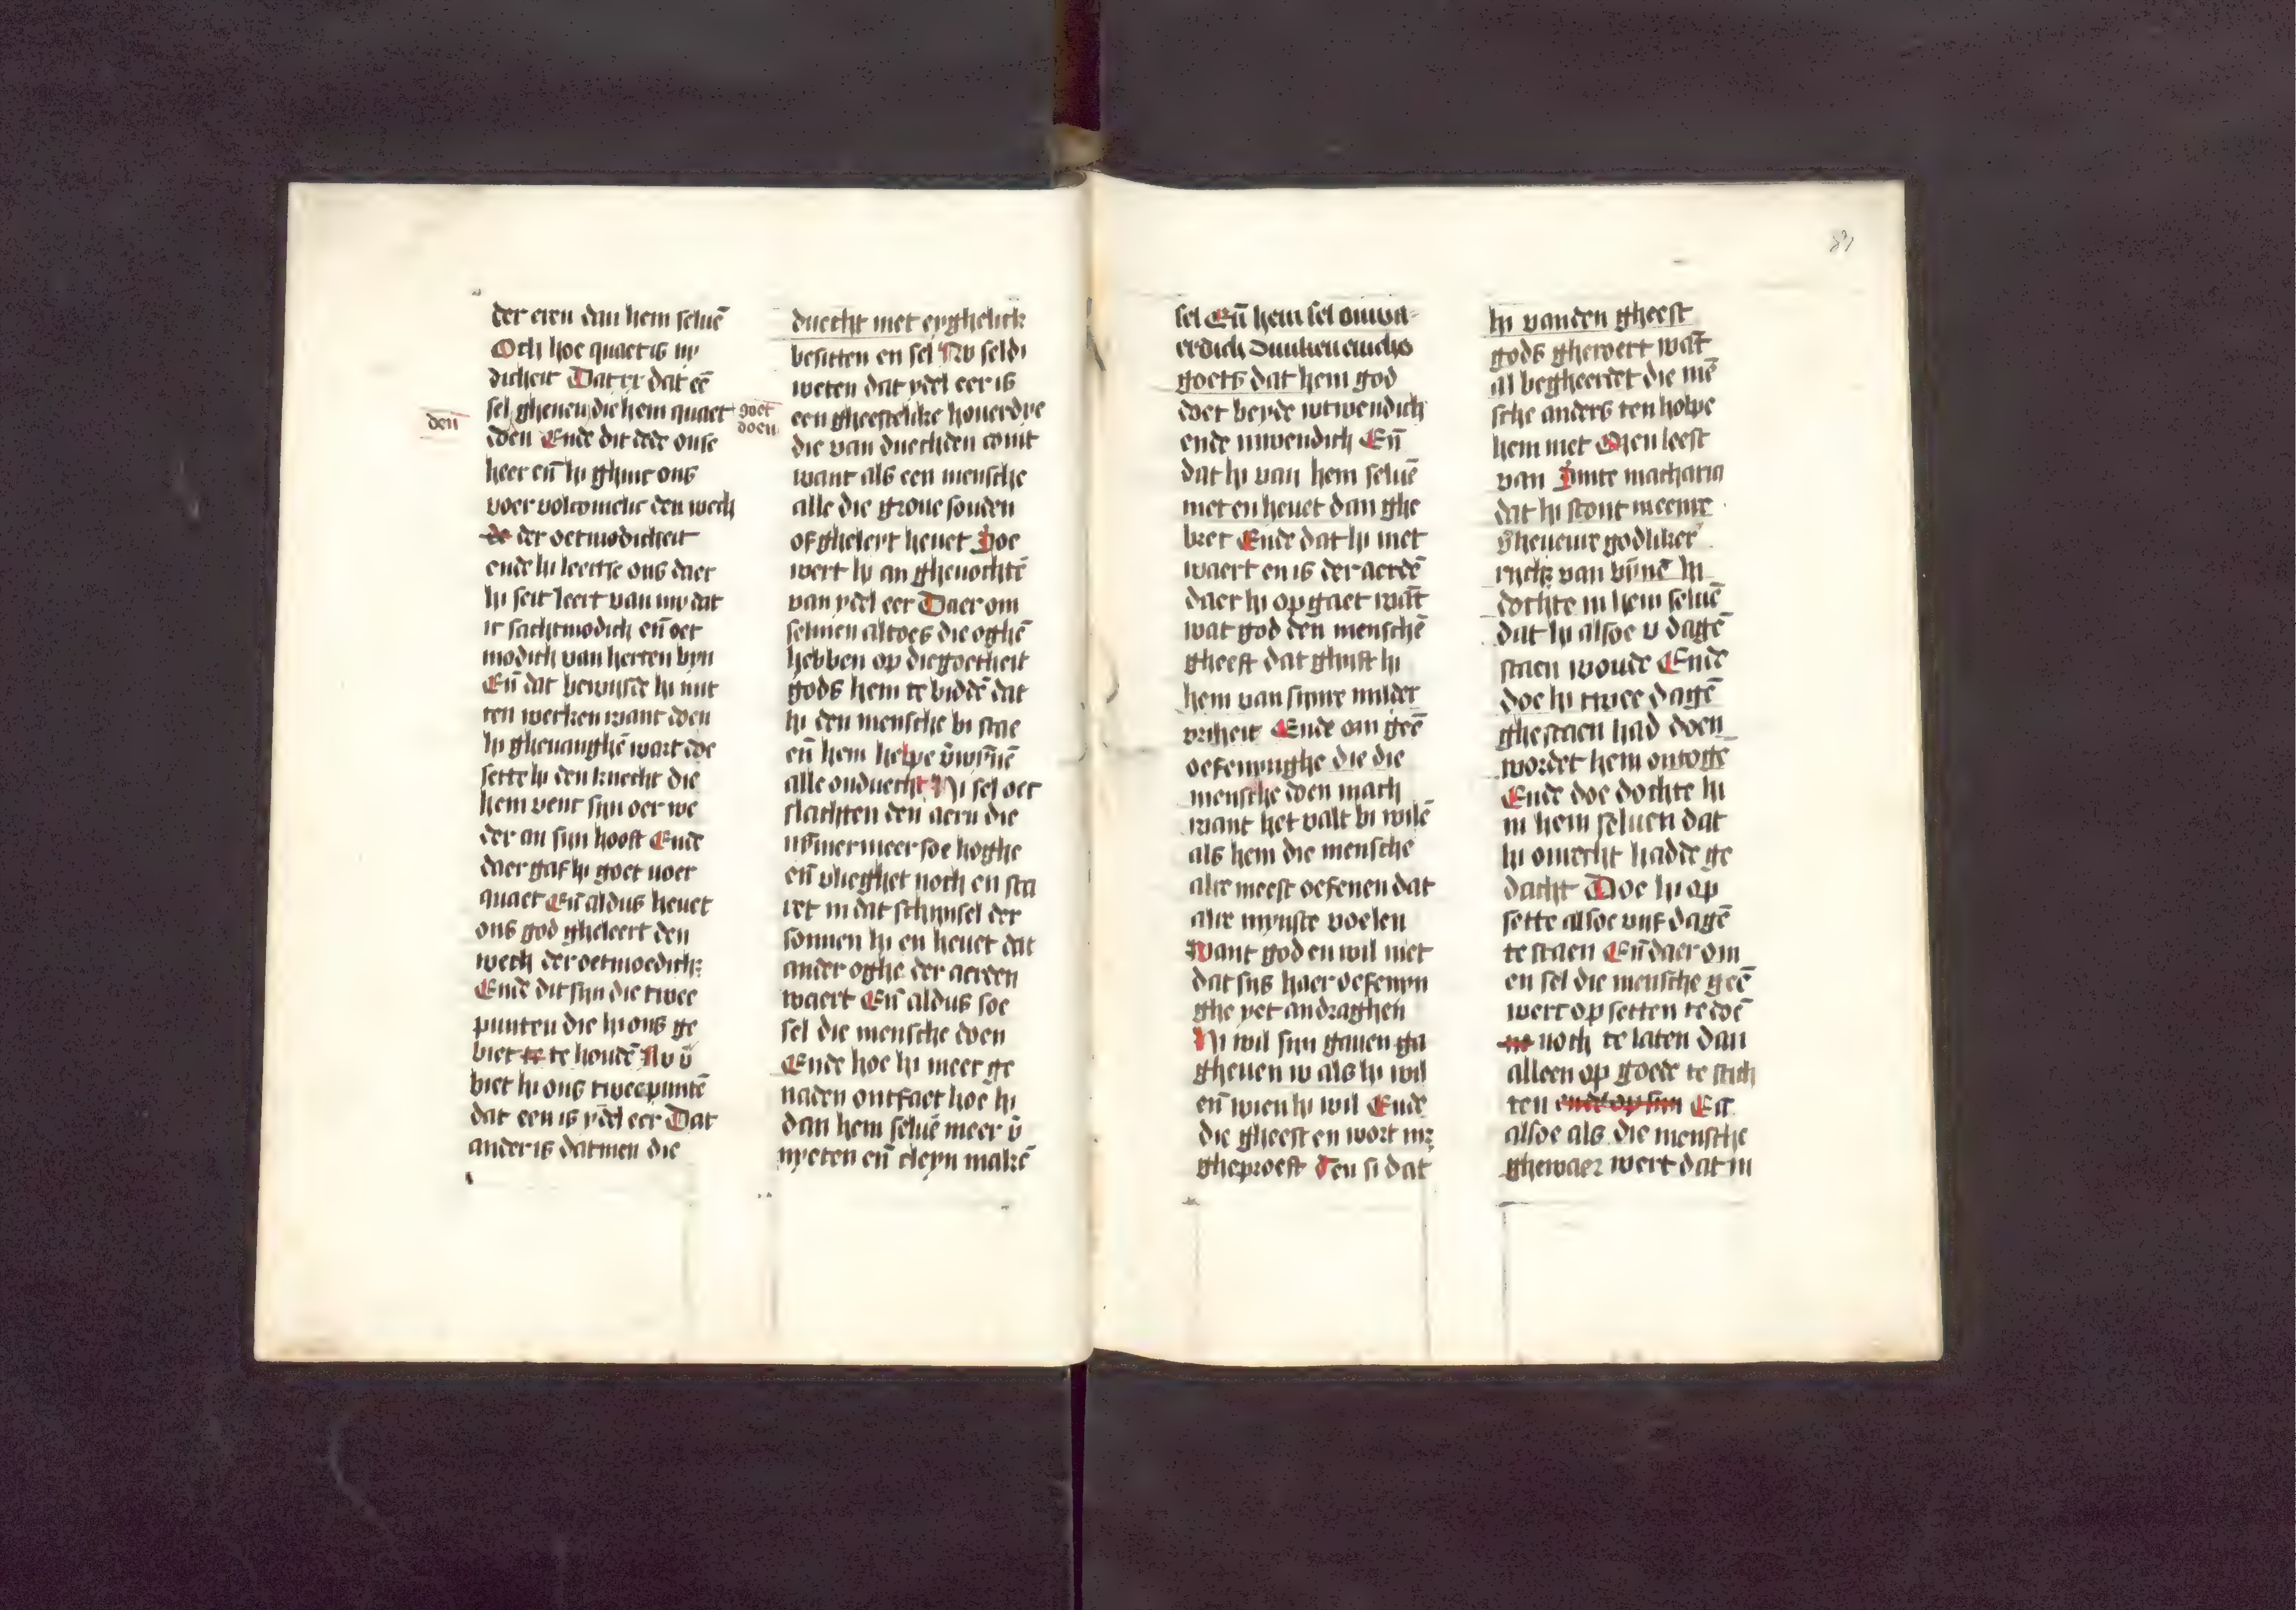 der eren dan hem seluē
Och hoe quaet is ny
dicheit Dat er dat eē
sel gheuen die hem quaet
den
goet
doen
doen Ende dit dede onse
heer eñ hi ghinc ons
voer volcomelic den wech
de der oetmodicheit
ende hi leerse ons daer
hi seit leert van my dat
ic sachtmodich eñ oet
modich van herten byn
Eñ dat bewijsde hi mit
ten werken want doen
hi gheuanghē wart doe
sette hi den knecht die
hem venc sijn oer we
der an sijn hooft Ende
daer gaf hi goet voer
quaet Eñ aldus heuet
ons god gheleert den
wech der oetmoedich
Ende dit sijn die twee
punten die hi ons ge
biet te te houdē Nv v̄
biet hi ons twee puntē
dat een is ydel eer Dat
ander is datmen die
duecht niet eyghelick
besitten en sel Nv seldi
weten dat ydel eer is
een gheestelike houerdye
die van duechden comt
want als een mensche
alle die groue sonden
of gheleyt heuet Soe
wert hi an gheuochtē
van ydel eer Daer om
selmen altoes die oghē
hebben op die goetheit
gods hem te biddē dat
hi den mensche bi stae
eñ hem helpe v̄winnē
alle onduecht Hi sel oec
slachten den aern die
nv̄mermeer soe hoghe
eñ vlieghet noch en sta
ret in dat schijnsel der
sonnen hi en heuet dat
ander oghe der aerden
waert Eñ aldus soe
sel die mensche doen
Ende hoe hi meer ge
naden ontfaet hoe hi
dan hem seluē meer v̄
nyeten eñ cleyn makē
sel Eñ hem sel onwa
erdich duncken enichs
goets dat hem god
doet beyde wtwendich
ende inwendich Eñ
dat hi van hem seluē
niet en heuet dan ghe
brec Ende dat hi niet
waert en is der aerdē
daer hi op gaet wāt
wat god den menschē
gheeft dat ghift hi
hem van sijnre milder
vriheit Ende om geē
oefenynghe die die
mensche doen mach
want het valt bi wilē
als hem die mensche
alre meest oefenen dat
alre mynste voelen
Want god en wil niet
dat sijs haer oefenyn
ghe yet andraghen
Hi wil sijn gauen ga
gheuen w als hi wil
eñ wien hi wil Ende
die gheest en wort nz
gheproeft Ten si dat
hi vanden gheest
gods gheroert wāt
al begheerdet die mē
sche anders ten holpe
hem niet Men leest
van Sinte macharia
dat hi stont in eenre
v̄heuenre godliker
van bīnē hi
dochte in hem seluē
dat hi alsoe v dagē
staen woude Ende
doe hi twee dagē
ghestaen had doen
wordet hem ontoge
Ende doe dochte hi
in hem seluen dat
hi onrecht hadde ge
dacht Doe hi op
sette alsoe vijf dagē
te staen Eñ daer om
en sel die mensche geē
werc op setten te doē
noch te laten dan
alleen op goede te stich
ten ende op sijn Eñ
alsoe als die mensche
ghewaer wert dat in